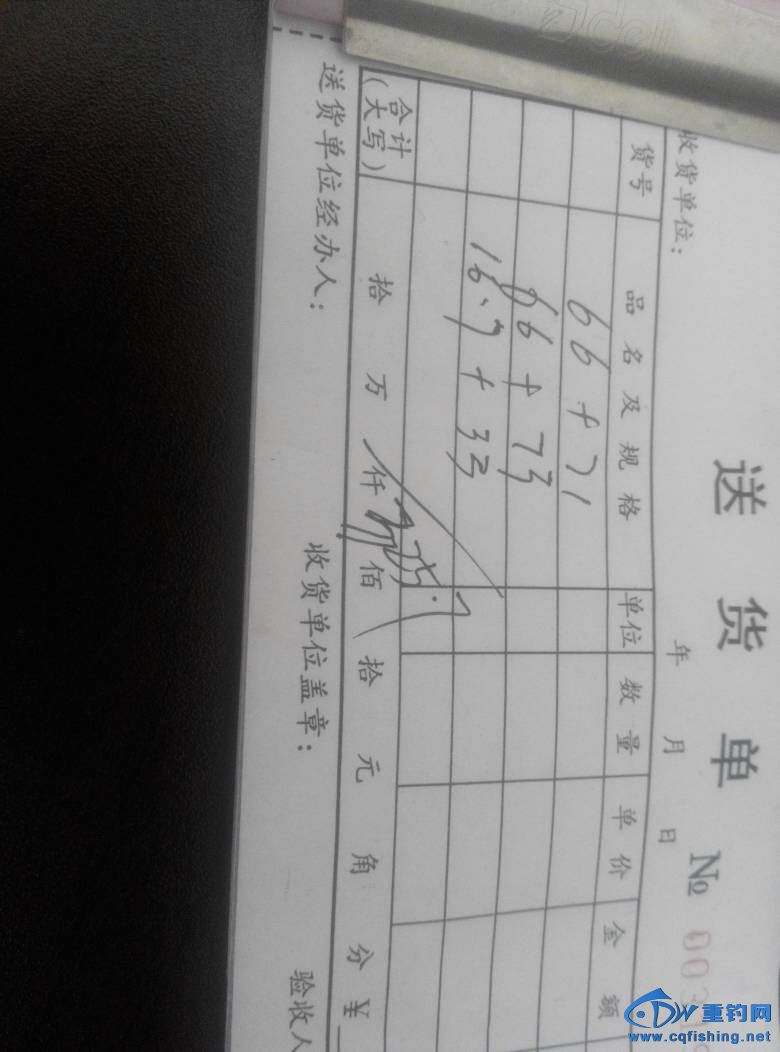 送货单 № 003
收货单位: 年 月 日
货号 品名及规格 单位 数量 单价 金额
66+71
66+73
16.7+33
合计(大写) 拾 万 仟 佰 拾 元 角 分 ¥
送货单位经办人: 收货单位盖章: 验收人
重钓网
www.cqfishing.net